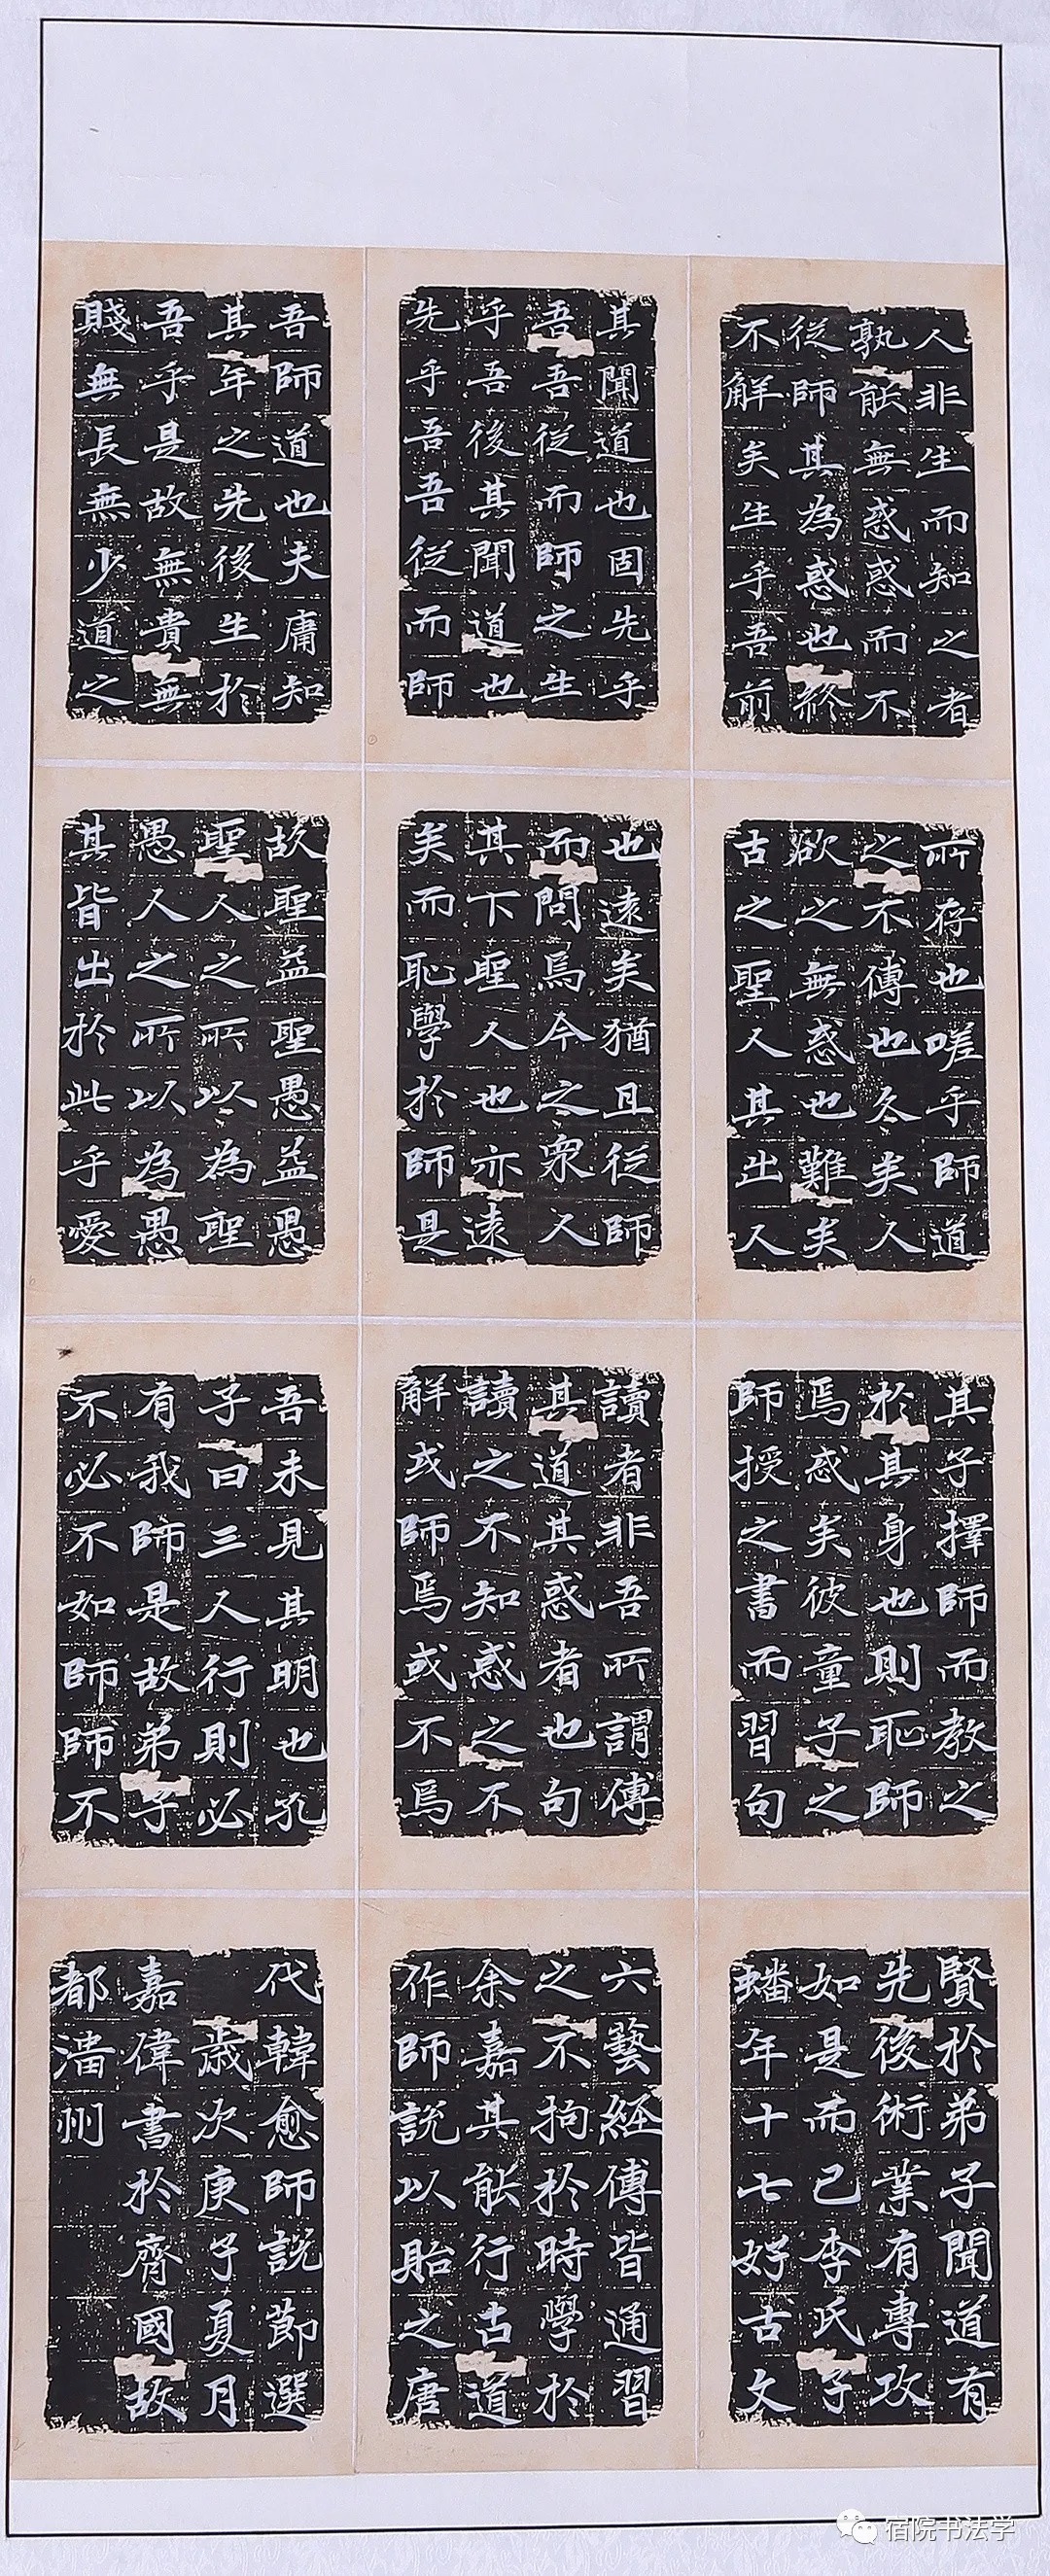 人非生而知之者
孰能無惑惑而不
從師其為惑也終
不解矣生乎吾前
其聞道也固先乎
吾吾從而師之生
乎吾後其聞道也
先乎吾吾從而師
吾師道也夫庸知
其年之先後生於
吾乎是故無貴無
賤無長無少道之
所存也嗟乎師道
之不傳也久矣人
欲之無惑也難矣
古之聖人其出人
也遠矣猶且從師
而問焉今之眾人
其下聖人也亦遠
矣而恥學於師是
故聖益聖愚益愚
聖人之所以為聖
愚人之所以為愚
其皆出於此乎愛
其子擇師而教之
於其身也則恥師
焉惑矣彼童子之
師授之書而習句
讀者非吾所謂傳
其道其惑者也句
讀之不知惑之不
解或師焉或不焉
吾未見其明也孔
子曰三人行則必
有我師是故弟子
不必不如師師不
賢於弟子聞道有
先後術業有專攻
如是而已李氏子
蟠年十七好古文
六藝經傳皆通習
之不拘於時學於
余嘉其能行古道
作師說以貽之唐
代韓愈師說節選
歲次庚子夏月
嘉偉書於齊國故
都淄州
宿院书法学